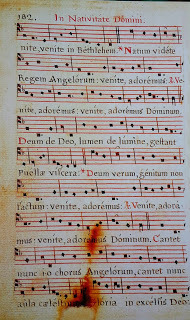 182. In Nativitate Domini.
nite, venite in Bethlehem. * Natum vidéte
Regem Angelorum: venite, adorémus: ℣. Ve-
nite, adorémus: venite, adorémus Dominum.
Deum de Deo, lumen de lumine, gestant
Puellæ viscera: * Deum verum, génitum non
factum: venite, adorémus: ℣. Venite, adora-
mus: venite, adorémus Dóminum. Cantet
nunc io chorus Angelórum, cantet nunc
aula cælestium glória in excélsis Deo: